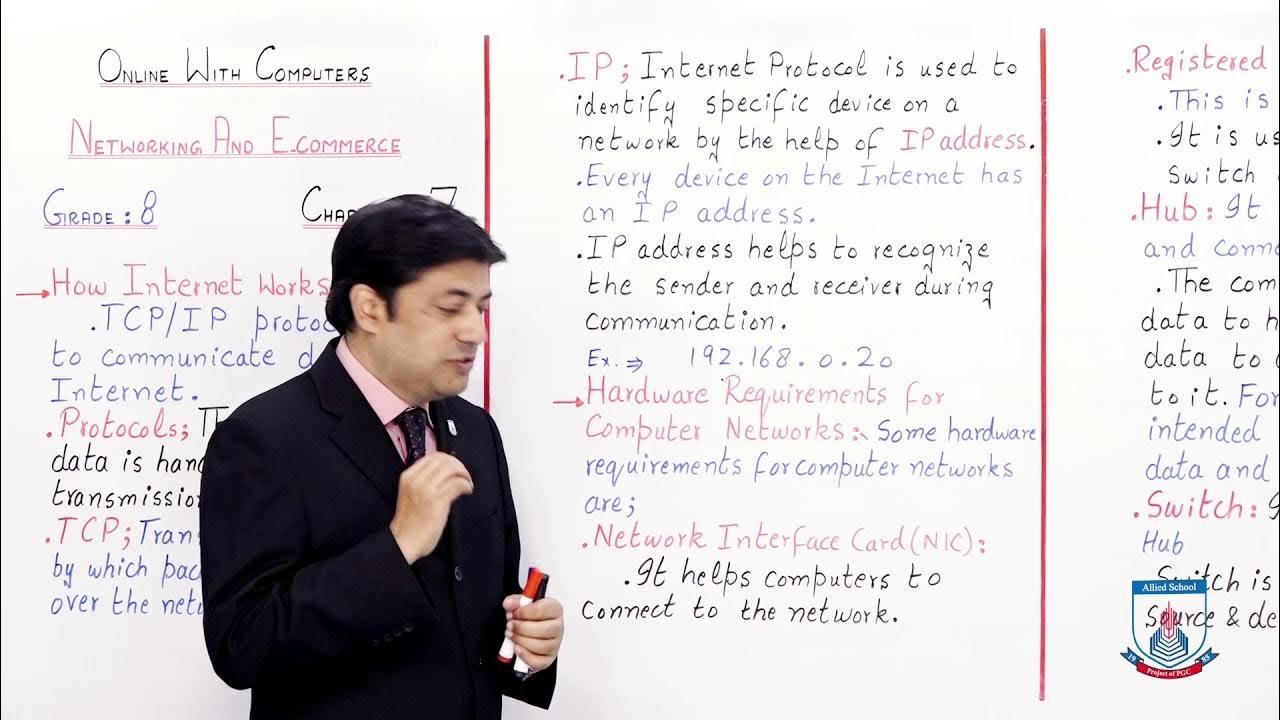 Online With Computers
Networking And E-commerce
Grade: 8
7
→ How Internet Works
.TCP/IP
to communicate
Internet.
.Protocols;
data is
transmission
.TCP;
by which
over the
.IP; Internet Protocol is used to
identify specific device on a
network by the help of IP address.
.Every device on the Internet has
an IP address.
.IP address helps to recognize
the sender and receiver during
communication.
Ex. ⇒ 192.168.0.20
→ Hardware Requirements for
Computer Networks:- Some hardware
requirements for computer networks
are;
.Network Interface Card (NIC):
.It helps computers to
connect to the network.
.Registered
.This is
.It is
Switch
.Hub: It
and
.The
data to
data to
to it. For
intended
data and
.Switch:
Hub
Switch is
Source &
Allied School
1985
Project of PGC